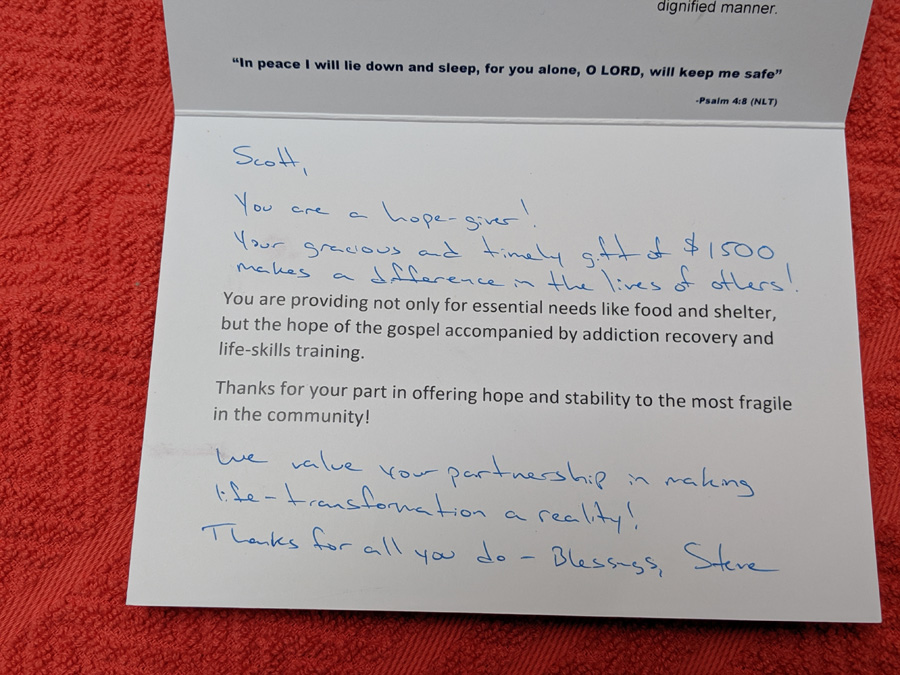 dignified manner.
“In peace I will lie down and sleep, for you alone, O LORD, will keep me safe”
-Psalm 4:8 (NLT)
Scott,
You are a hope-giver!
Your gracious and timely gift of $1500
makes a difference in the lives of others!
You are providing not only for essential needs like food and shelter,
but the hope of the gospel accompanied by addiction recovery and
life-skills training.
Thanks for your part in offering hope and stability to the most fragile
in the community!
We value your partnership in making
life-transformation a reality!
Thanks for all you do - Blessings, Steve